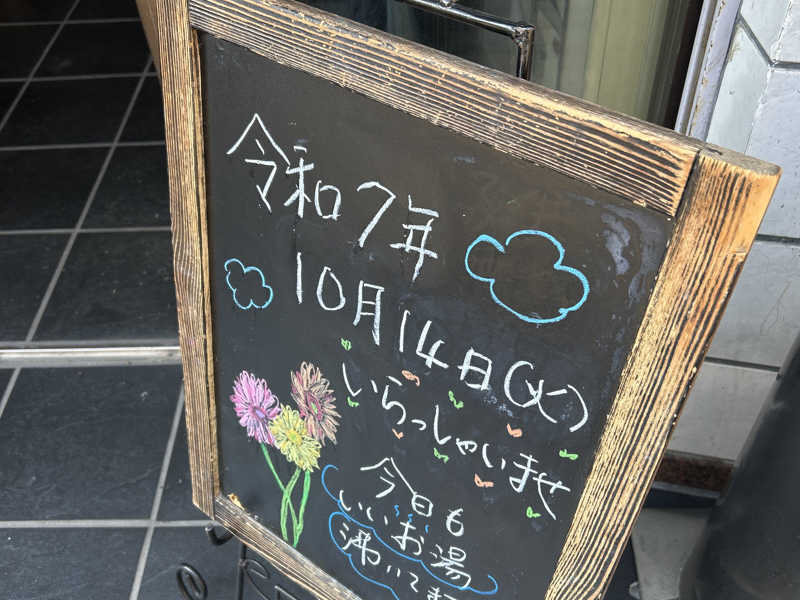 令和7年
10月14日(火)
いらっしゃいませ
今日も
いいお湯
沸いてま